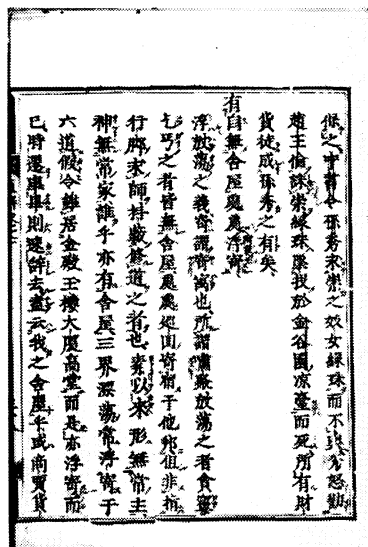 倐之中書令孫秀求崇之奴女綠珠而不與秀怒勸
趙王倫誅崇綠珠墜投於金谷園涼臺而死所有財
貨徒成孫秀之有矣
有自無舍屋處處浮寄
浮放蕩之義寄謂寄寓也所謂肅然放蕩之者貪窶
乞丐之者皆無舍屋處處廻国寄宿于他邦但非擔
行脚末師抖藪修道之者也素以來形無常主
神無常家誰乎亦有舍屋三界漂蕩常浮寄于
六道假令雖居金殿玉樓大廈高堂而是亦浮寄而
已時還畢則速辞去盡云我之舍屋乎或商買貨